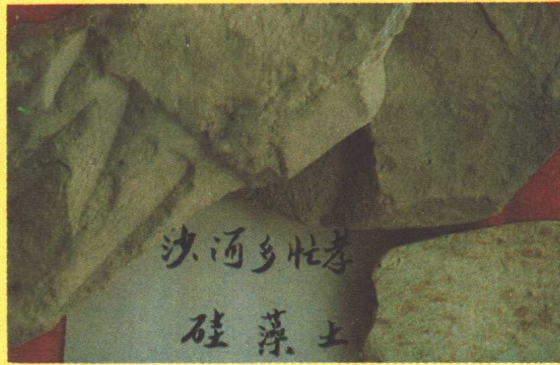 沙河乡忙孝
硅藻土